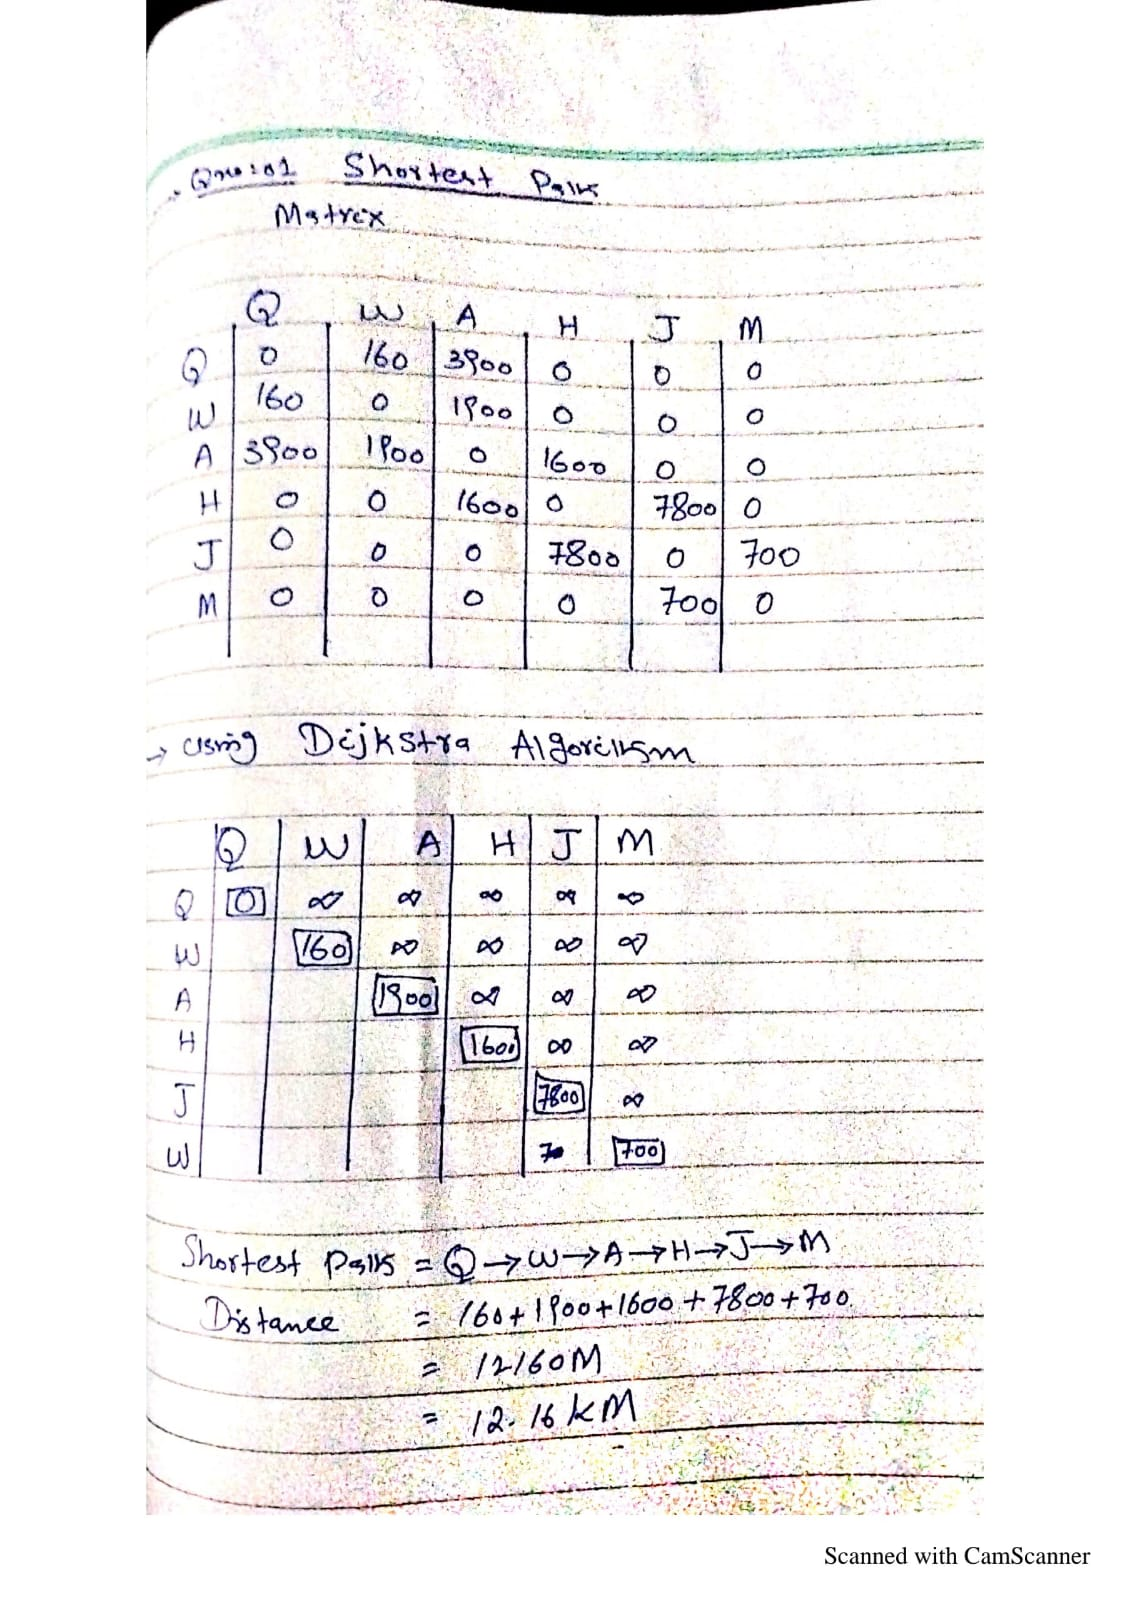 Qno:01 Shortest Path
Matrix
Q W A H J M
Q 0 160 3900 0 0 0
W 160 0 1900 0 0 0
A 3900 1900 0 1600 0 0
H 0 0 1600 0 7800 0
J 0 0 0 7800 0 700
M 0 0 0 0 700 0
→ Using Dijkstra Algorithm
Q W A H J M
Q 0 ∞ ∞ ∞ ∞ ∞
W 160 ∞ ∞ ∞ ∞
A 1900 ∞ ∞ ∞
H 1600 ∞ ∞
J 7800 ∞
W 700
Shortest Path = Q→W→A→H→J→M
Distance = 160+1900+1600+7800+700
= 12160M
= 12.16 KM
Scanned with CamScanner